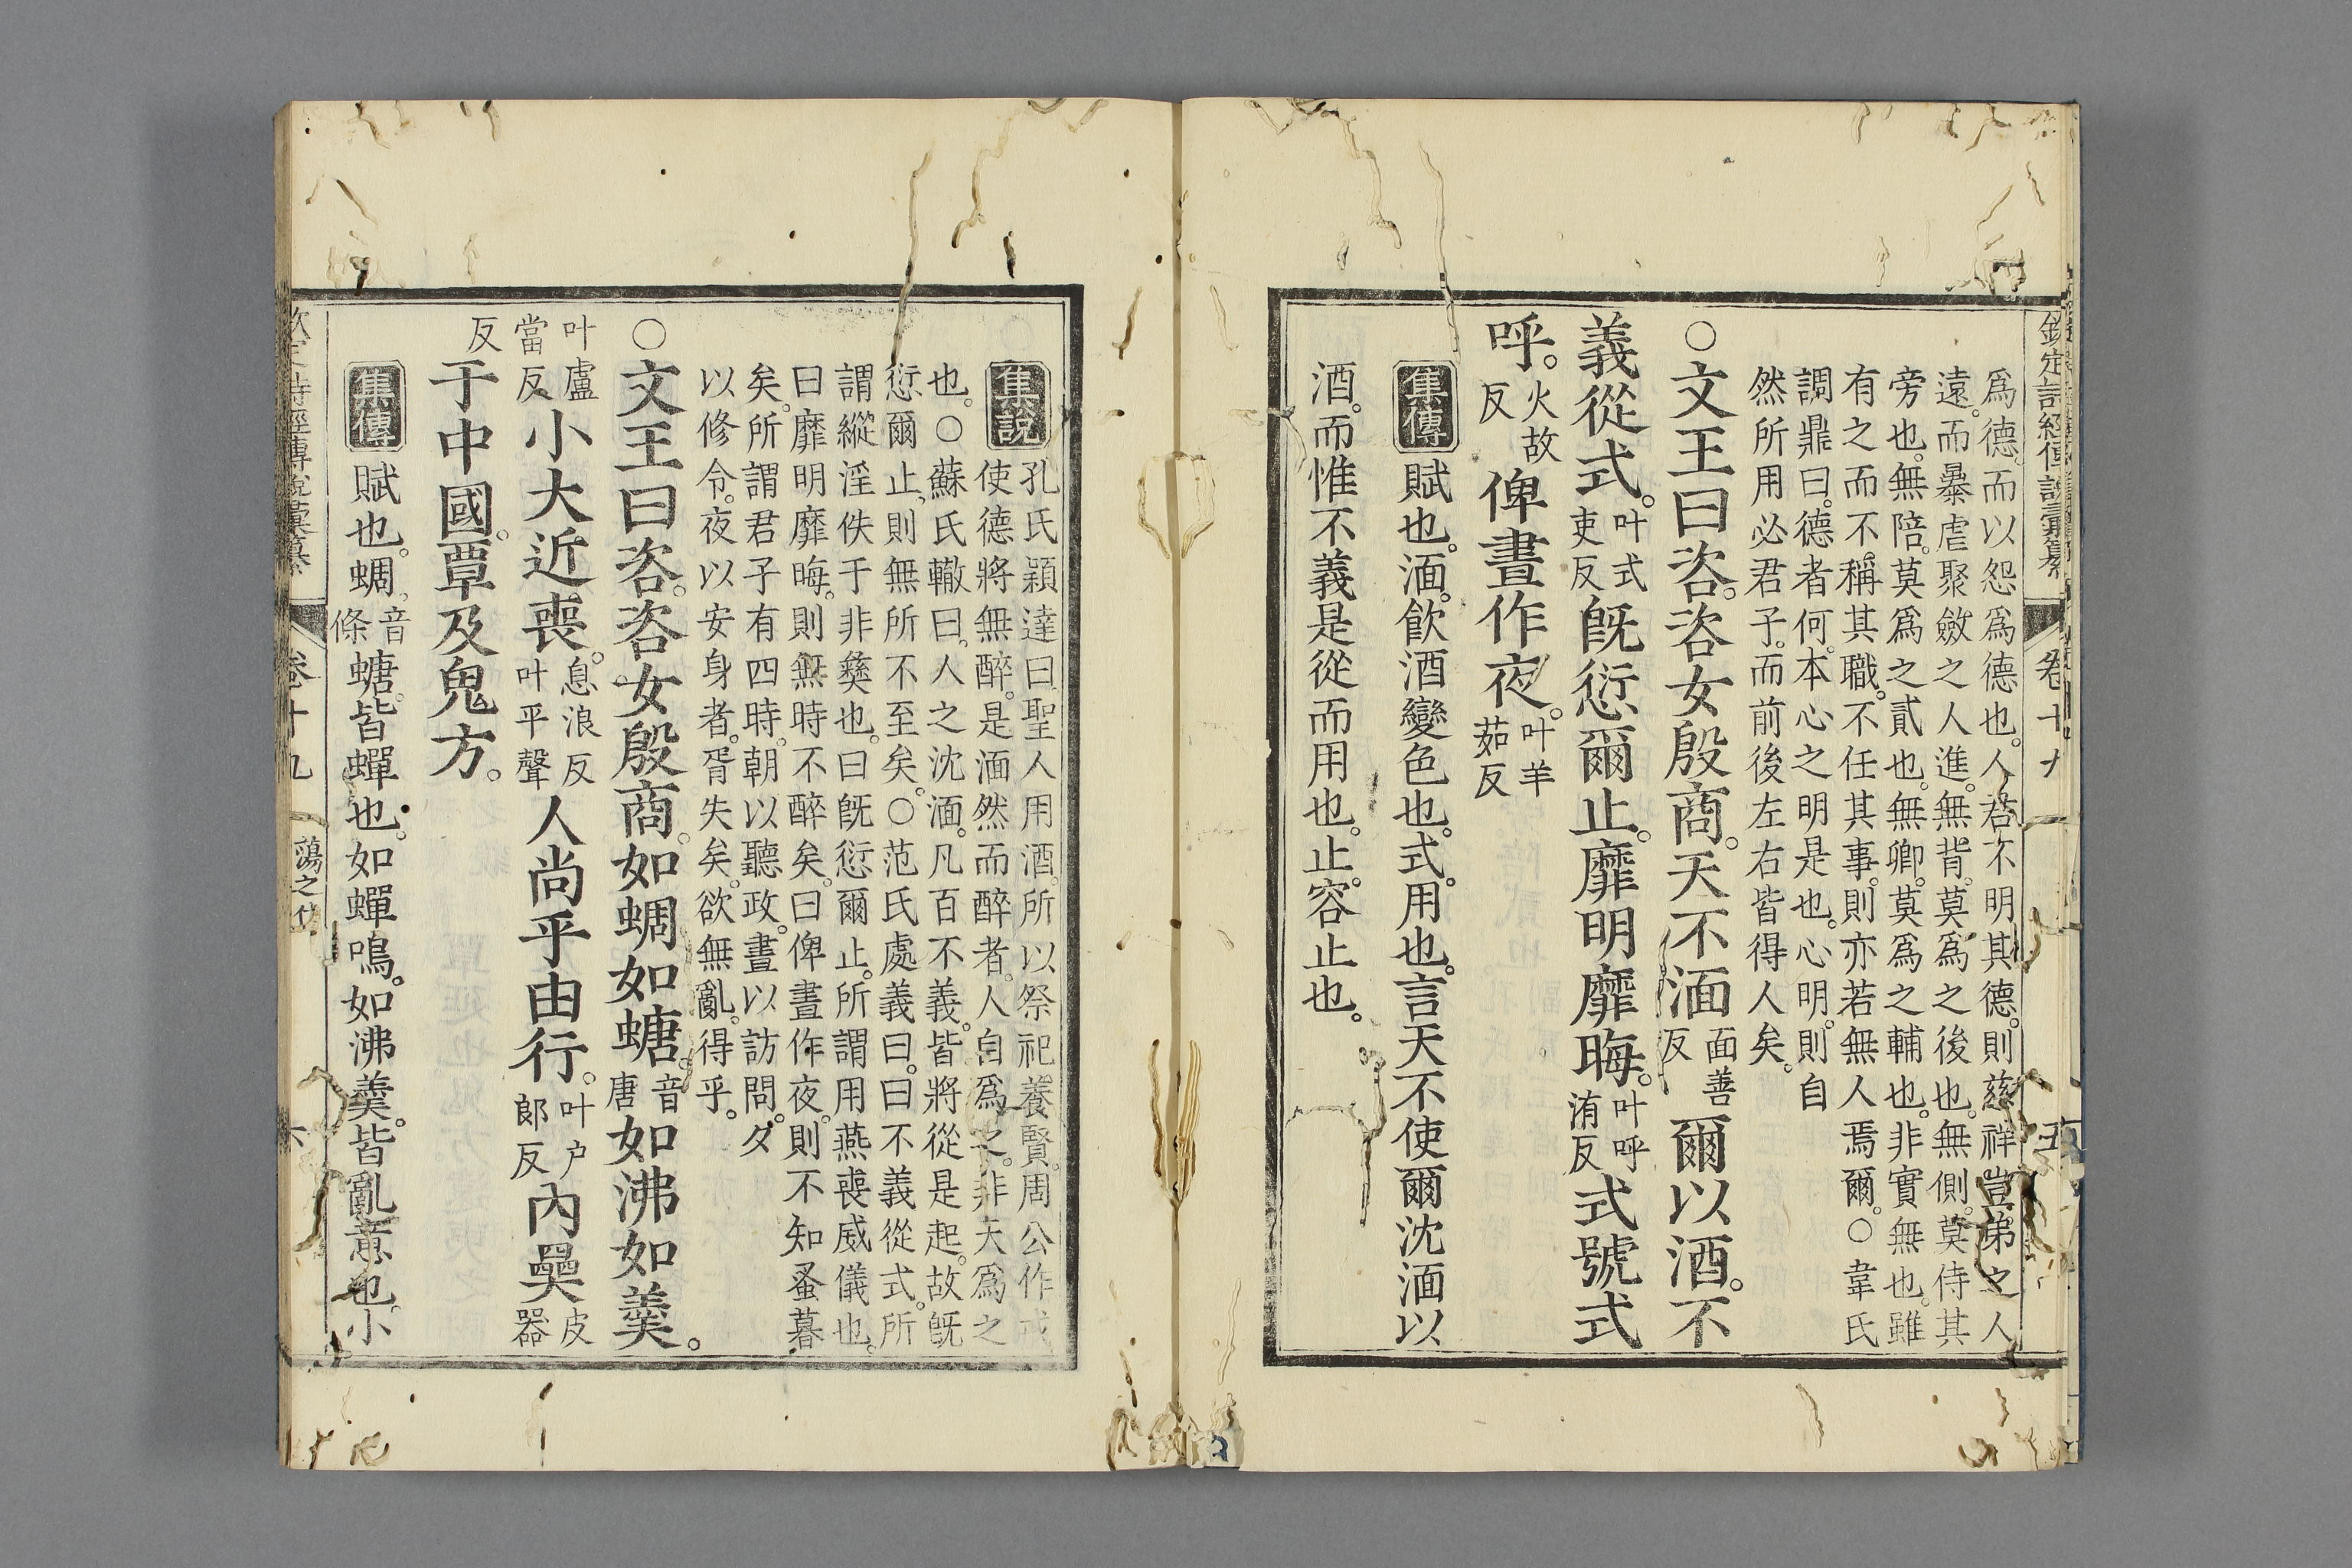 欽定詩經傳說彙纂 卷十九 五
爲德。而以怨爲德也。人君不明其德。則慈祥豈弟之人
遠。而暴虐聚斂之人進。無背。莫爲之後也。無側。莫侍其
旁也。無陪。莫爲之貳也。無卿。莫爲之輔也。非實無也。雖
有之而不稱其職。不任其事。則亦若無人焉爾。○韋氏
調鼎曰。德者何。本心之明是也。心明。則自
然所用必君子。而前後左右皆得人矣。
○文王曰咨。咨女殷商。天不湎面善反爾以酒。不
義從式。叶式吏反旣愆爾止。靡明靡晦。叶呼洧反式號式
呼。火故反俾晝作夜。叶羊茹反
集傳 賦也。湎。飮酒變色也。式。用也。言天不使爾沈湎以
酒。而惟不義是從而用也。止。容止也。
集說 孔氏穎達曰聖人用酒。所以祭祀養賢。周公作戒
使德將無醉。是湎然而醉者。人自爲之。非天爲之
也。○蘇氏轍曰。人之沈湎。凡百不義。皆將從是起。故旣
愆爾止。則無所不至矣。○范氏處義曰。曰不義從式。所
謂縱淫佚于非彝也。曰旣愆爾止。所謂用燕喪威儀也。
曰靡明靡晦。則無時不醉矣。曰俾晝作夜。則不知蚤暮
矣。所謂君子有四時。朝以聽政。晝以訪問。夕
以修令。夜以安身者。胥失矣。欲無亂。得乎。
○文王曰咨。咨女殷商。如蜩如螗。音唐如沸如羹。
叶盧當反小大近喪。息浪反叶平聲人尚乎由行。叶户郞反內奰皮器
反于中國。覃及鬼方。
集傳 賦也。蜩。音條螗。皆蟬也。如蟬鳴。如沸羹。皆亂意也。小
欽定詩經傳說彙纂 卷十九 蕩之什 六